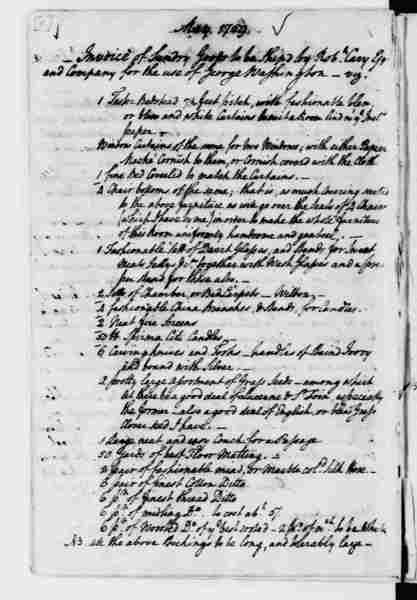 May 1759.
Invoice of Sundry Goods to be Ship'd by Rob.t Cary Esq.
and Company for the use of George Washington — viz.
1 Tester Bedstead 7½ feet pitch, with fashionable blew
or blue and white Curtains to suit a Room laid wt yl. Irel.d
paper —
Window Curtains of the same for two Windows; with either Papier
Machee Cornish to them, or Cornish covered with the Cloth
1 fine Bed Coverlid to match the Curtains. —
4 Chair bottoms of the same; that is, as much covering suited
to the above furniture as will go over the Seats of 4 Chairs
(which I have by me) in order to make the whole furniture
of this Room uniformly handsome and genteel.
1 Fashionable Sett of Desert Glasses, and Stands for Sweet
Meats Jellys &c. together with Wash Glasses and a proper
Stand for these also. —
2 Setts of Chamber, or Bed Carpets — Wilton.
4 Fashionable China Branches, & Stands, for Candles.
2 Neat fire Screens
50 lb Sperma Citi Candles
6 Carving Knives and Forks — handles of Stained Ivory
and bound with Silver.
2 pretty large Assortment of Grass Seeds — among which
let there be a good deal of Lucerne & St. Foin especially
the former — also a good deal of English, or blue Grass
Clover Seed I have. —
1 Large neat and easy Couch for a Passage
50 Yards of best Floor Matting. —
2 pair of fashionable mixd, or Marble cold. Silk Hose —
6 pair of finest Cotton Ditto
6 pr. of finest thread Ditto
6 pr. of midling Do. to cost abt. 5/
6 pr. of Worsted Do. of yr. best sorted — 2 prs. of wch. to be White
N3 All the above Stockings to be long, and tolerably large —